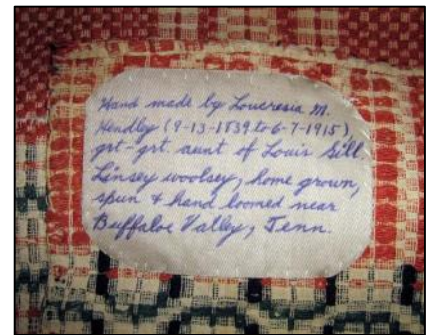 Hand made by Loucresia M.
Hendley (9-13-1839 to 6-7-1915),
grt-grt aunt of Louis Gill.
Linsey woolsey, home grown,
spun & hand loomed near
Buffaloe Valley, Tenn.